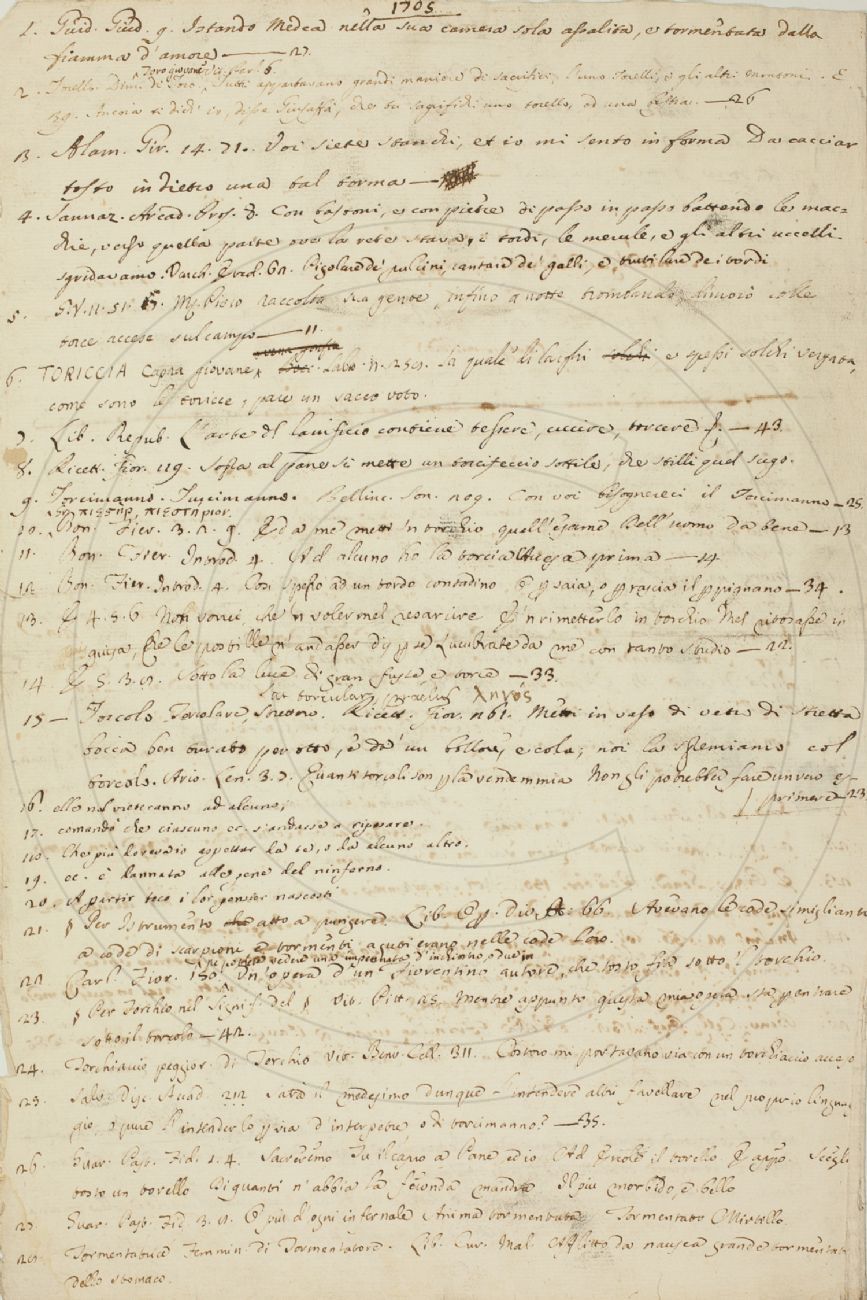 1705
1. Guid. Giud. 9. Istando Medea nella sua camera sola assalita, e tormentata dalla
fiamma d'amore — 27
2. Torello. Dim. di Toro, Toro giovane. Tutti apportavano grandi maniere di sacrifici, l'uno torelli, e gli altri montoni. E
39. Ancora ti dich'io, disse, che tu sagrifichi uno torello, ad una — 26
13. Alam. Gir. 14. 71. Voi siete stanchi, et io mi sento in forma Da cacciar
tosto indietro una tal torma —
4. Sannaz. Arcad. Pros. 8. Con bastoni, e con pietre di passo in passo battendo le mac-
chie, verso quella parte ove la rete stava, i tordi, le merule, e gli altri uccelli
sgridavamo. Varch. Ercol. 62. Pigolare de' pulcini, cantare de' galli, e trutilare dei tordi
5. G. V. 11. 51. Piero raccolta sua gente, infino a notte trombando dimorò colle
torce accese sul campo — 11.
6. TORICCIA Capra giovane. Lab. n. 259. La quale di larghi e spessi solchi vergata,
come sono le toricce, pare un sacco voto.
7. Lib. Repub. L'arte del lanificio contiene tessere, cucire, torcere &. — 43
8. Ricett. Fior. 119. Sopra al pane si mette un torcifeccio sottile, che stilli quel sugo.
9. Torcimanno. Turcimanno. Bellinc. son. 209. Con voi bisognereci il Torcimanno — 25
πιεστὴρ, πιεστήριον.
10. Bon. Fier. 3. 2. 9. Ed a me metti in torchio quell'esame Dell'uomo da bene — 13
11. Bon. Fier. Introd. 4. Nè alcuno ho la torcia accesa prima — 14
12. Bon. Fier. Introd. 4. Così spesso ad un tordo contadino E per saia, o per rascia il perpignano — 34.
13. E 4. 5. 6 Non vorrei, che 'n volermel risarcire E 'n rimetterlo in torchio Mel ritosasse in
guisa, Che le postille n' andasser disperse Lucubrate da me con tanto studio — 22.
14. E 5. 3. 9. Sotto la luce di gran fuste e torce — 33.
Lat. torcular, prælum ληνός
15 — Torcolo Torcolare, Strettoio. Ricett. Fior. 261. Metti in vaso di vetro di stretta
bocca ben turato per otto, e da' un bollore, e cola; poi la spremiamo col
torcolo. Ario. Len. 3. 7. Quanti torcoli son per la vendemmia Non gli potrebbe fare un uovo es-
primere — 23
16. elle nol vieteranno ad alcuno;
17. comandò che ciascuno ec. s'andasse a riposare.
18. Che più dovevaio aspettar da te, o da alcuno altro.
19. ec. è dannata alle pene del ninferno.
20. A partir teco i lor pensier nascosti
21. § Per Istrumento atto a pungere. Lib. Op. Div. 66. Avevano le code simiglianti
a code di scarpioni e tormenti aguti erano nelle code loro.
22. Carl. Fior. 150. Un'opera d'un Fiorentino autore, che tosto fia sotto 'l torchio.
23. § Per Torchio nel signif. del § Vit. Pitt. 25. Mentre appunto questa mia opera sta per entrare
sotto il torcolo — 42.
24. Torchiaccio peggior. di Torchio Vit. Benv. Cell. 311. Costoro mi portavano via con un torchiaccio acceso
25. Salv. Disc. Acad. 212. Sarà il medesimo dunque l'intendere altri favellare nel proprio lingua-
gio, oppure l'intenderlo per via d'interpetre o di torcimanno? — 35.
26. Guar. Past. Fid. 1. 4. Sacreremo Tu il capro a Pane ed io Ad Ercole il torello E appo. Scegli
tosto un torello Di quanti n'abbia la feconda mandra Il più morbido, e bello
27. Guar. Past. Fid. 3. 9. O più d'ogni infernale Anima tormentata Tormentato Mirtillo.
28. Tormentatrice Femmin. di Tormentatore. Lib. Cur. Mal. Afflitto da nausea grande tormentatrice
dello stomaco.